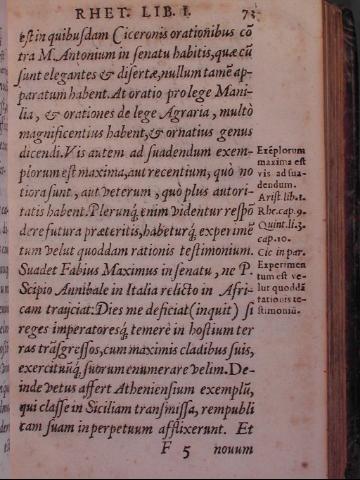 RHET. LIB. I. 73
est in quibusdam Ciceronis orationibus cō
tra M. Antonium in senatu habitis, quæ cū
sunt elegantes & disertæ, nullum tamē ap-
paratum habent. At oratio pro lege Mani-
lia, & orationes de lege Agraria, multò
magnificentius habent, & ornatius genus
dicendi. Vis autem ad suadendum exem-
plorum est maxima, aut recentium, quò no
tiora sunt, aut veterum, quò plus autori-
tatis habent. Plerunq́; enim videntur respō
dere futura præteritis, habeturq́; experimē
tum velut quoddam rationis testimonium.
Suadet Fabius Maximus in senatu, ne P.
Scipio Annibale in Italia relicto in Afri-
cam traijciat: Dies me deficiat (inquit) si
reges imperatoresq́; temerè in hostium ter
ras trāsgressos, cum maximis cladibus suis,
exercituūq́; suorum enumerare velim. De-
inde vetus affert Atheniensium exemplū,
qui classe in Siciliam transmissa, rempubli
tam suam in perpetuum afflixerunt. Et
F 5 nouum
Exēplorum
maxima est
vis ad sua-
dendum.
Arist. lib. 1.
Rhe. cap. 9.
Quint. li. 3.
cap. 10.
Cic in par.
Experimen
tum est ve-
lut quoddā
rationis te-
stimoniū.